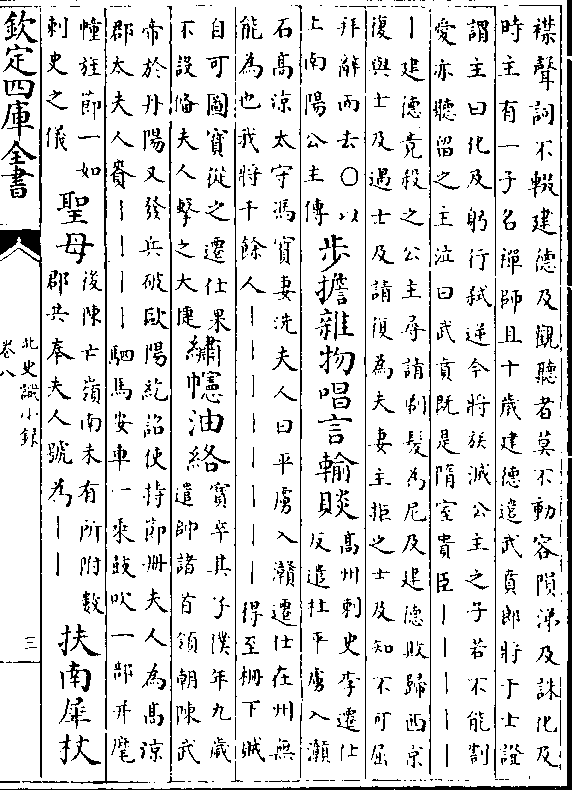 襟聲詞不輟建德及觀聽者莫不動容隕涕及誅化及
時主有一子名禪師且十歲建德遣武賁郎將于士證
謂主曰化及躬行弑逆今將族滅公主之子若不能割
愛亦聽留之主泣曰武賁既是隋室貴臣丨丨丨丨丨
丨建德竟殺之公主尋請剃髮為尼及建德敗歸西京
復與士及遇士及請復為夫妻主拒之士及知不可屈
拜辭而去〇以上南陽公主傳
步擔雜物唱言輸賧
高州刺史李遷仕反遣杜平虜入灨
石高涼太守馮寶妻洗夫人曰平虜入灨遷仕在州無
能為也我將千餘人丨丨丨丨丨丨丨丨得至柵下賊
自可圖寶從之遷仕果不設備夫人擊之大捷
繡幰油絡
寶卒其子僕年九歲遣帥諸首領朝陳武
帝於丹陽又發兵破歐陽紇詔使持節冊夫人為高涼
郡太夫人賚丨丨丨丨駟馬安車一乘鼓吹一部并麾
幢旌節一如刺史之儀
聖母
後陳亡嶺南未有所附數郡共奉夫人號為丨丨
扶南犀杖
欽定四庫全書
北史識小錄
卷八
三